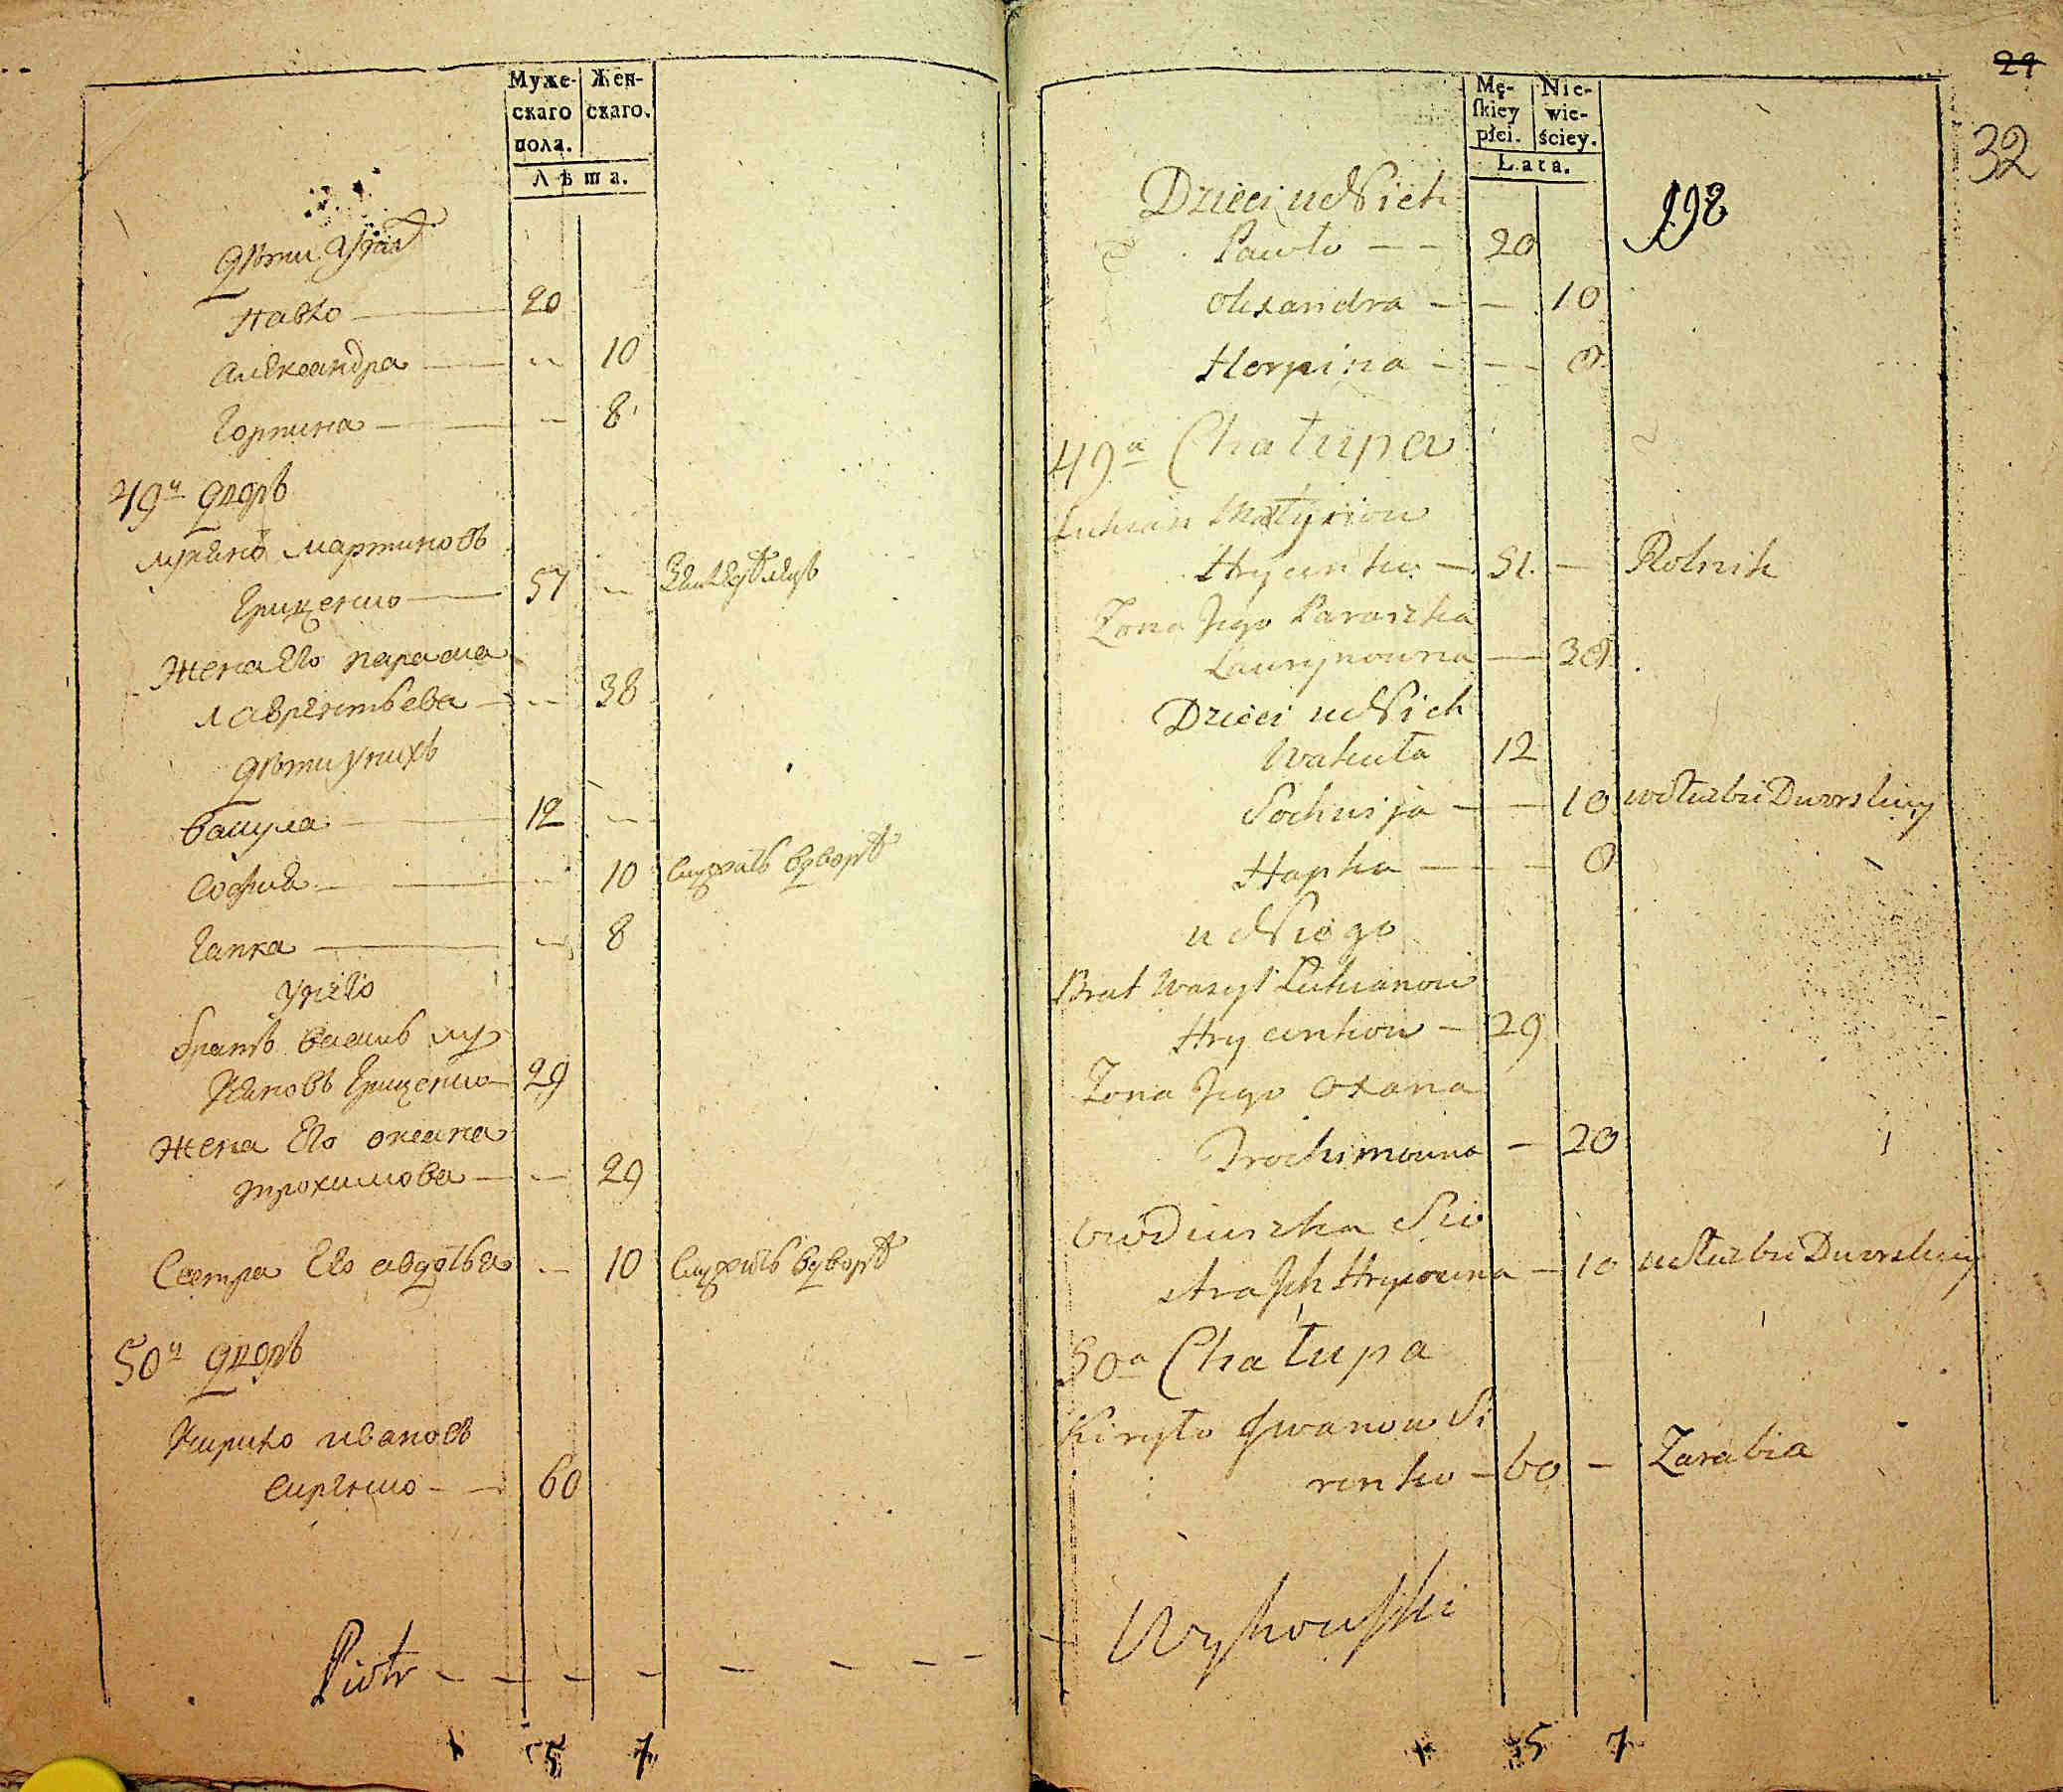 Муже-
скаго
пола.
Жен-
скаго.
Лѣта.
Дѣти у них
Павло 20
Александра 10
Горпина 8
49й дворъ
Лукянъ Мартиновъ
Гриценко 57 Земледѣлецъ
Жена Его Параска
Лаврентьева 38
Дѣти у нихъ
Вакула 12
София 10 служитъ в дворѣ
Гапка 8
У него
братъ Василь Лу
кяновъ Гриценко 29
Жена Его Оксана
Трохимова 29
Сестра Его Авдотья 10 служитъ в дворѣ
50й дворъ
Кирило Ивановъ
Сиренко 60
Piotr
5 7
29
32
198
Mę-
ſkiey
płci.
Nie-
wie-
ściey.
Lata.
Dzieci u Nich
Pawło 20
Olexandra 10
Horpina 8
49a Chałupa
Łukian
Hrycenko 51 Rolnik
Żona Jego Paraszka
Ławrynowna 38
Dzieci u Nich
Wakuła 12
Sochwija 10 w Służbie Dworskiey
Hapka 8
u Niego
Brat Wasyl Łukianow
Hrycenkow 29
Żona Jego Oxana
Trochimowna 20
Owdiuszka Sio
stra Ich Hrycowna 10 w Służbie Dworskiey
50a Chałupa
Kiryło Jwanow Si
renko 60 Zarabia
Wyhowſki
5 7